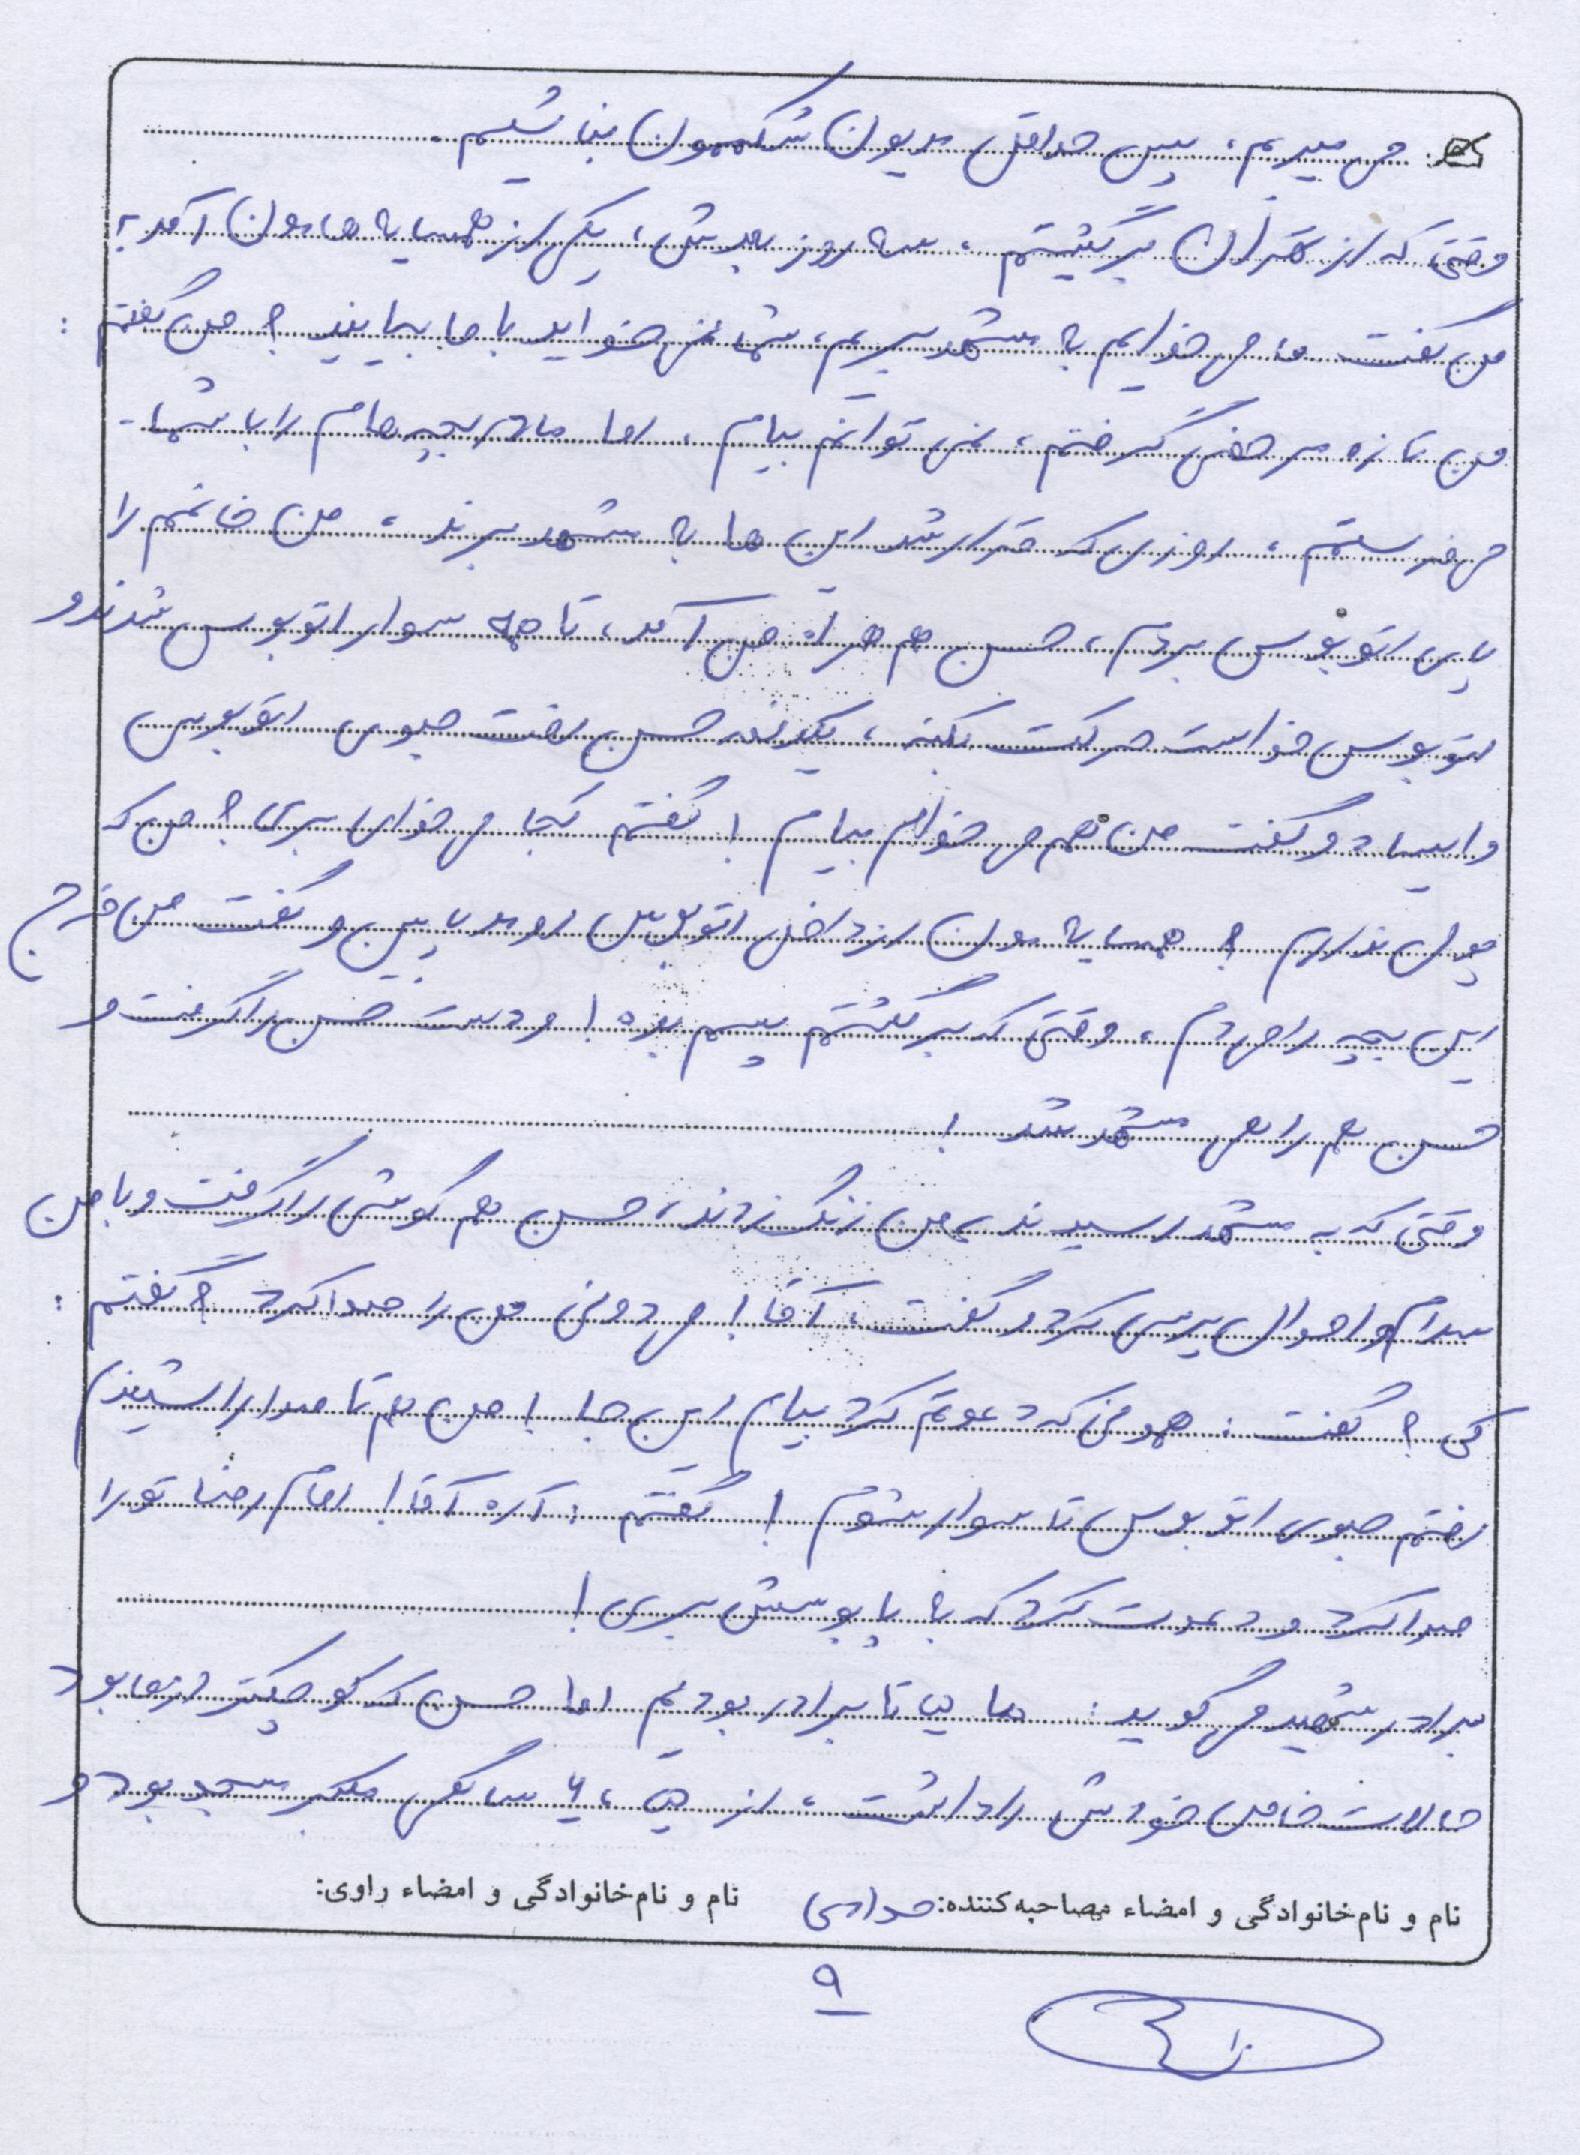 می میریم، پس حداقل مدیون شکممون نباشیم.
وقتی که از تهران برگشتیم، سه روز بعدش، یکی از همسایه هامون آمد به
من گفت ما می خوایم به مشهد بریم، شما نمی خواید با ما بیایید؟ من گفتم:
من تازه مرخصی گرفتم، نمی توانم بیام، اما مادر بچه هام را با شما
می فرستم، روزی که قرار شد این ها به مشهد برند، من خانمم را
پای اتوبوس بردم، حسن هم همراه من آمد، تا همه سوار اتوبوس شدند و
اتوبوس خواست حرکت بکنه، یکدفعه حسن رفت جلوی اتوبوس
وایساد و گفت من هم می خوام بیام! گفتم کجا می خوای بری؟ من که
پول ندارم؟ همسایه مون از داخل اتوبوس اومد پایین و گفت من خرج
این بچه را می دم، وقتی که برگشتم پسم بده! و دست حسن را گرفت و
حسن هم راهی مشهد شد!
وقتی که به مشهد رسیدند، به من زنگ زدند، حسن هم گوشی را گرفت و با من
سلام و احوال پرسی کرد و گفت، آقا! می دونی من را صدا کرد؟ گفتم:
کی؟ گفت: همونی که دعوتم کرد بیام این جا! من هم تا صدا را شنیدم
رفتم جلوی اتوبوس تا سوار شوم! گفتم: آره آقا! امام رضا تو را
صدا کرد و دعوت کرد که به پابوسش بری!
برادر شهید می گوید: ما تا برادر بودیم اما حسن که کوچیکتر از ما بود
حالات خاص خودش را داشت، از ۵، ۶ سالگی مکبر مسجد بود و
نام و نام‌خانوادگی و امضاء مصاحبه‌کننده: نام و نام‌خانوادگی و امضاء راوی:
۹